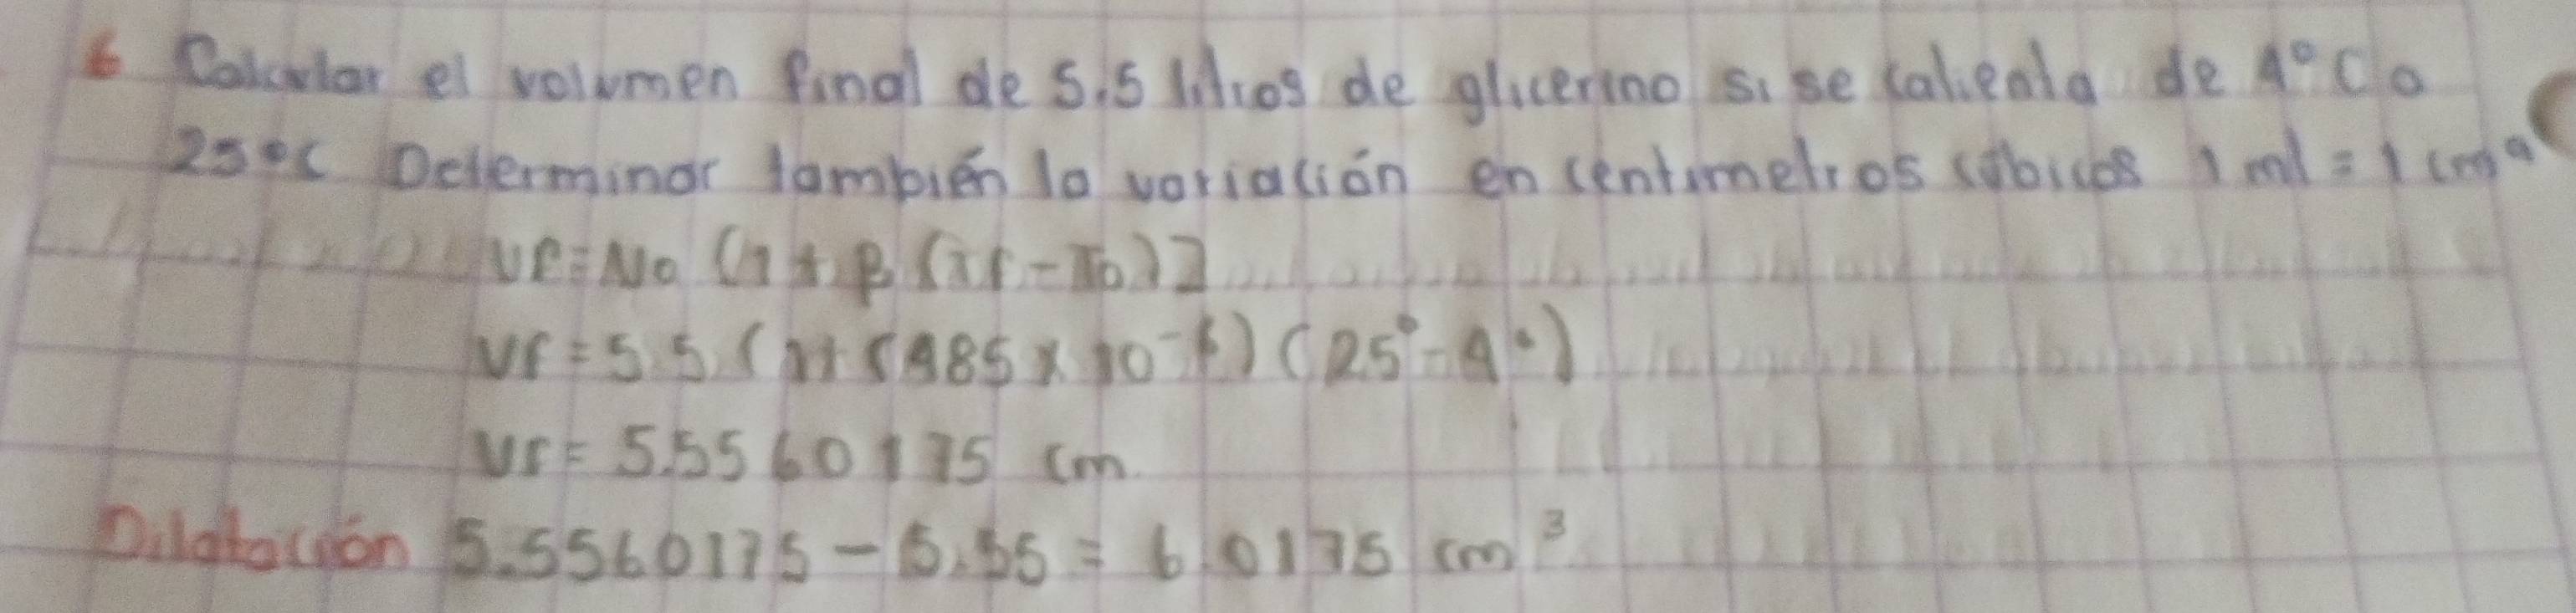 6 Calcular el volumen final de 5.5 litros de glicerina si se calienta de 4°C a
25°C Determinar también la variación en centimetros cúbicos 1 ml = 1 cm³
Vf = Vo (1 + β (Tf - To)]
Vf = 5.5 (1 + (485 x 10⁻⁶) (25° - 4°)
Vf = 5.5560175 cm
Dilatación 5.5560175 - 5.55 = 6.0175 cm³